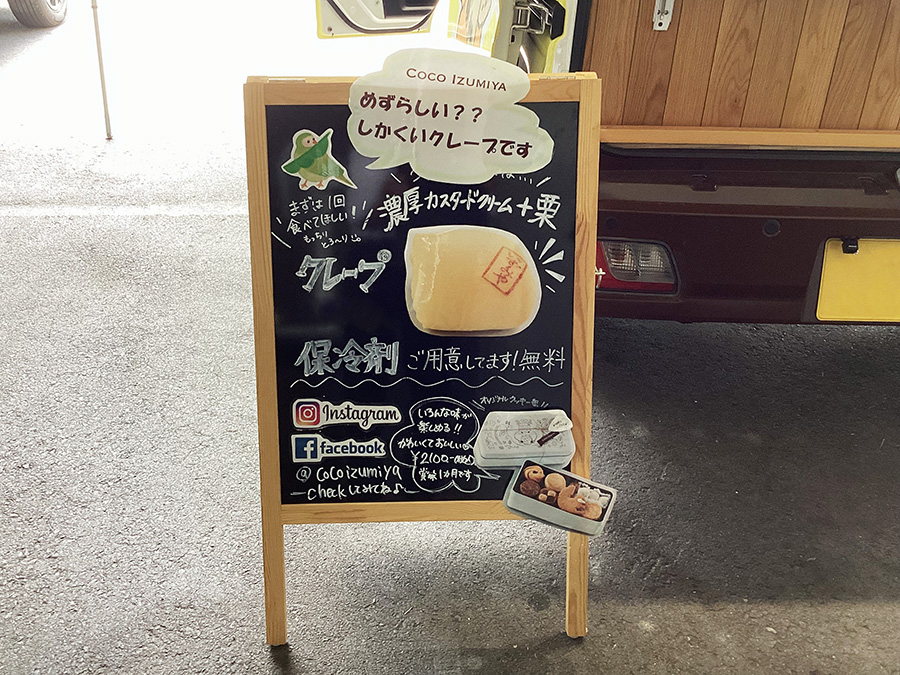 COCO IZUMIYA
めずらしい??
しかくいクレープです
濃厚カスタードクリーム+栗
まずは1回
食べてほしい!!
もっちり
とろ〜り
クレープ
保冷剤 ご用意してます!無料
Instagram
facebook
@cocoizumiya
checkしてみてね♪
オリジナルクッキー缶!!
いろんな味が
楽しめる!!
かわいくておいしい
¥2100-
賞味1カ月です